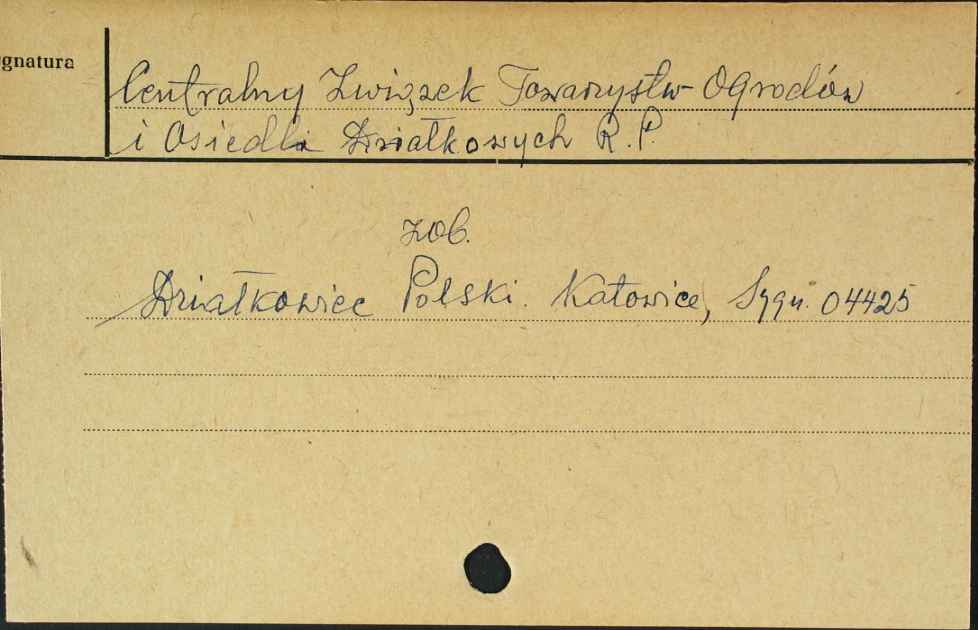 gnatura
Centralny Związek Towarzystw Ogrodów
i Osiedli Działkowych R.P.
zob.
Działkowiec Polski. Katowice, Sygn. 04425